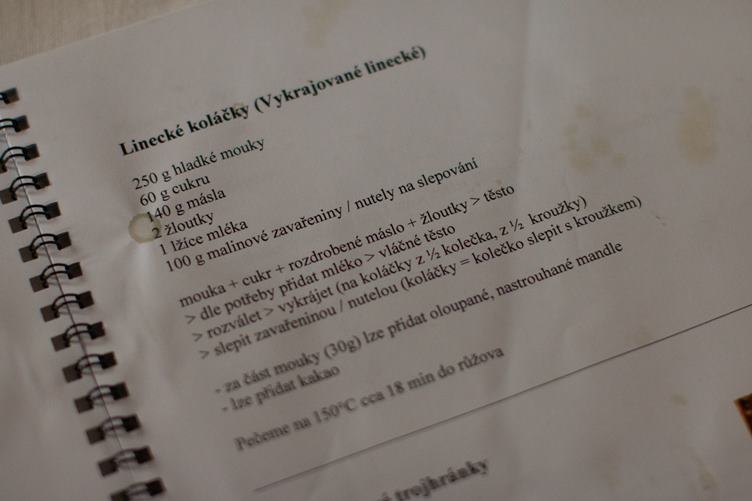 Linecké koláčky (Vykrajované linecké)
250 g hladké mouky
60 g cukru
140 g másla
2 žloutky
1 lžíce mléka
100 g malinové zavařeniny / nutely na slepování
mouka + cukr + rozdrobené máslo + žloutky > těsto
> dle potřeby přidat mléko > vláčné těsto
> rozválet > vykrájet (na koláčky z ½ kolečka, z ½ kroužky)
> slepit zavařeninou / nutelou (koláčky = kolečko slepit s kroužkem)
- za část mouky (30g) lze přidat oloupané, nastrouhané mandle
- lze přidat kakao
Pečeme na 150°C cca 18 min do růžova
trojhránky